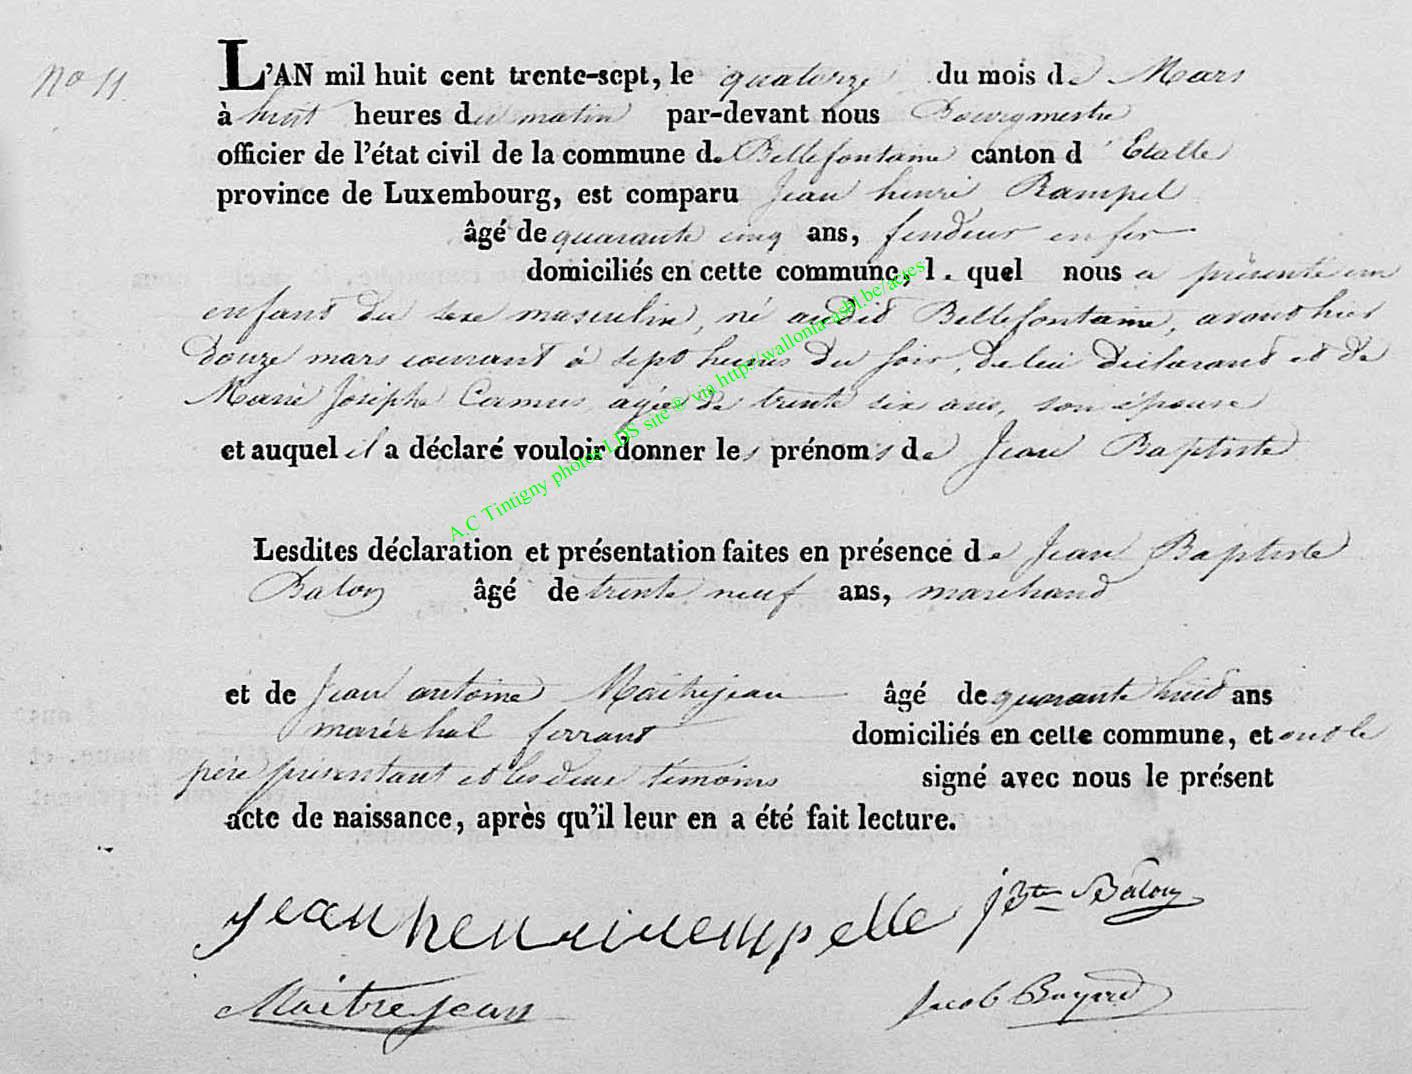 No 11.
L'AN mil huit cent trente-sept, le quatorze du mois de Mars
à huit heures du matin par-devant nous Bourgmestre
officier de l'état civil de la commune de Bellefontaine canton d'Etalle
province de Luxembourg, est comparu Jean henri Rampel
âgé de quarante cinq ans, fendeur en fer
domiciliés en cette commune, l. quel nous a présenté un
enfant du sexe masculin, né audit Bellefontaine, avant hier
douze mars courant à sept heures du soir, de lui déclarant et de
Marie Joseph Camus, agée de trente six ans, son épouse
et auquel il a déclaré vouloir donner les prénoms de Jean Baptiste
Lesdites déclaration et présentation faites en présence de Jean Baptiste
Balon âgé de trente neuf ans, marchand
et de Jean antoine Maitrejean âgé de quarante huit ans
maréchal ferrant domiciliés en cette commune, et ont le
père présentant et les deux témoins signé avec nous le présent
acte de naissance, après qu'il leur en a été fait lecture.
jean henri rempelle jBte Balon
Maitrejean Jacob Bayard
A.C Tintigny photos LDS site ® via http://wallonia-asbl.be/actes